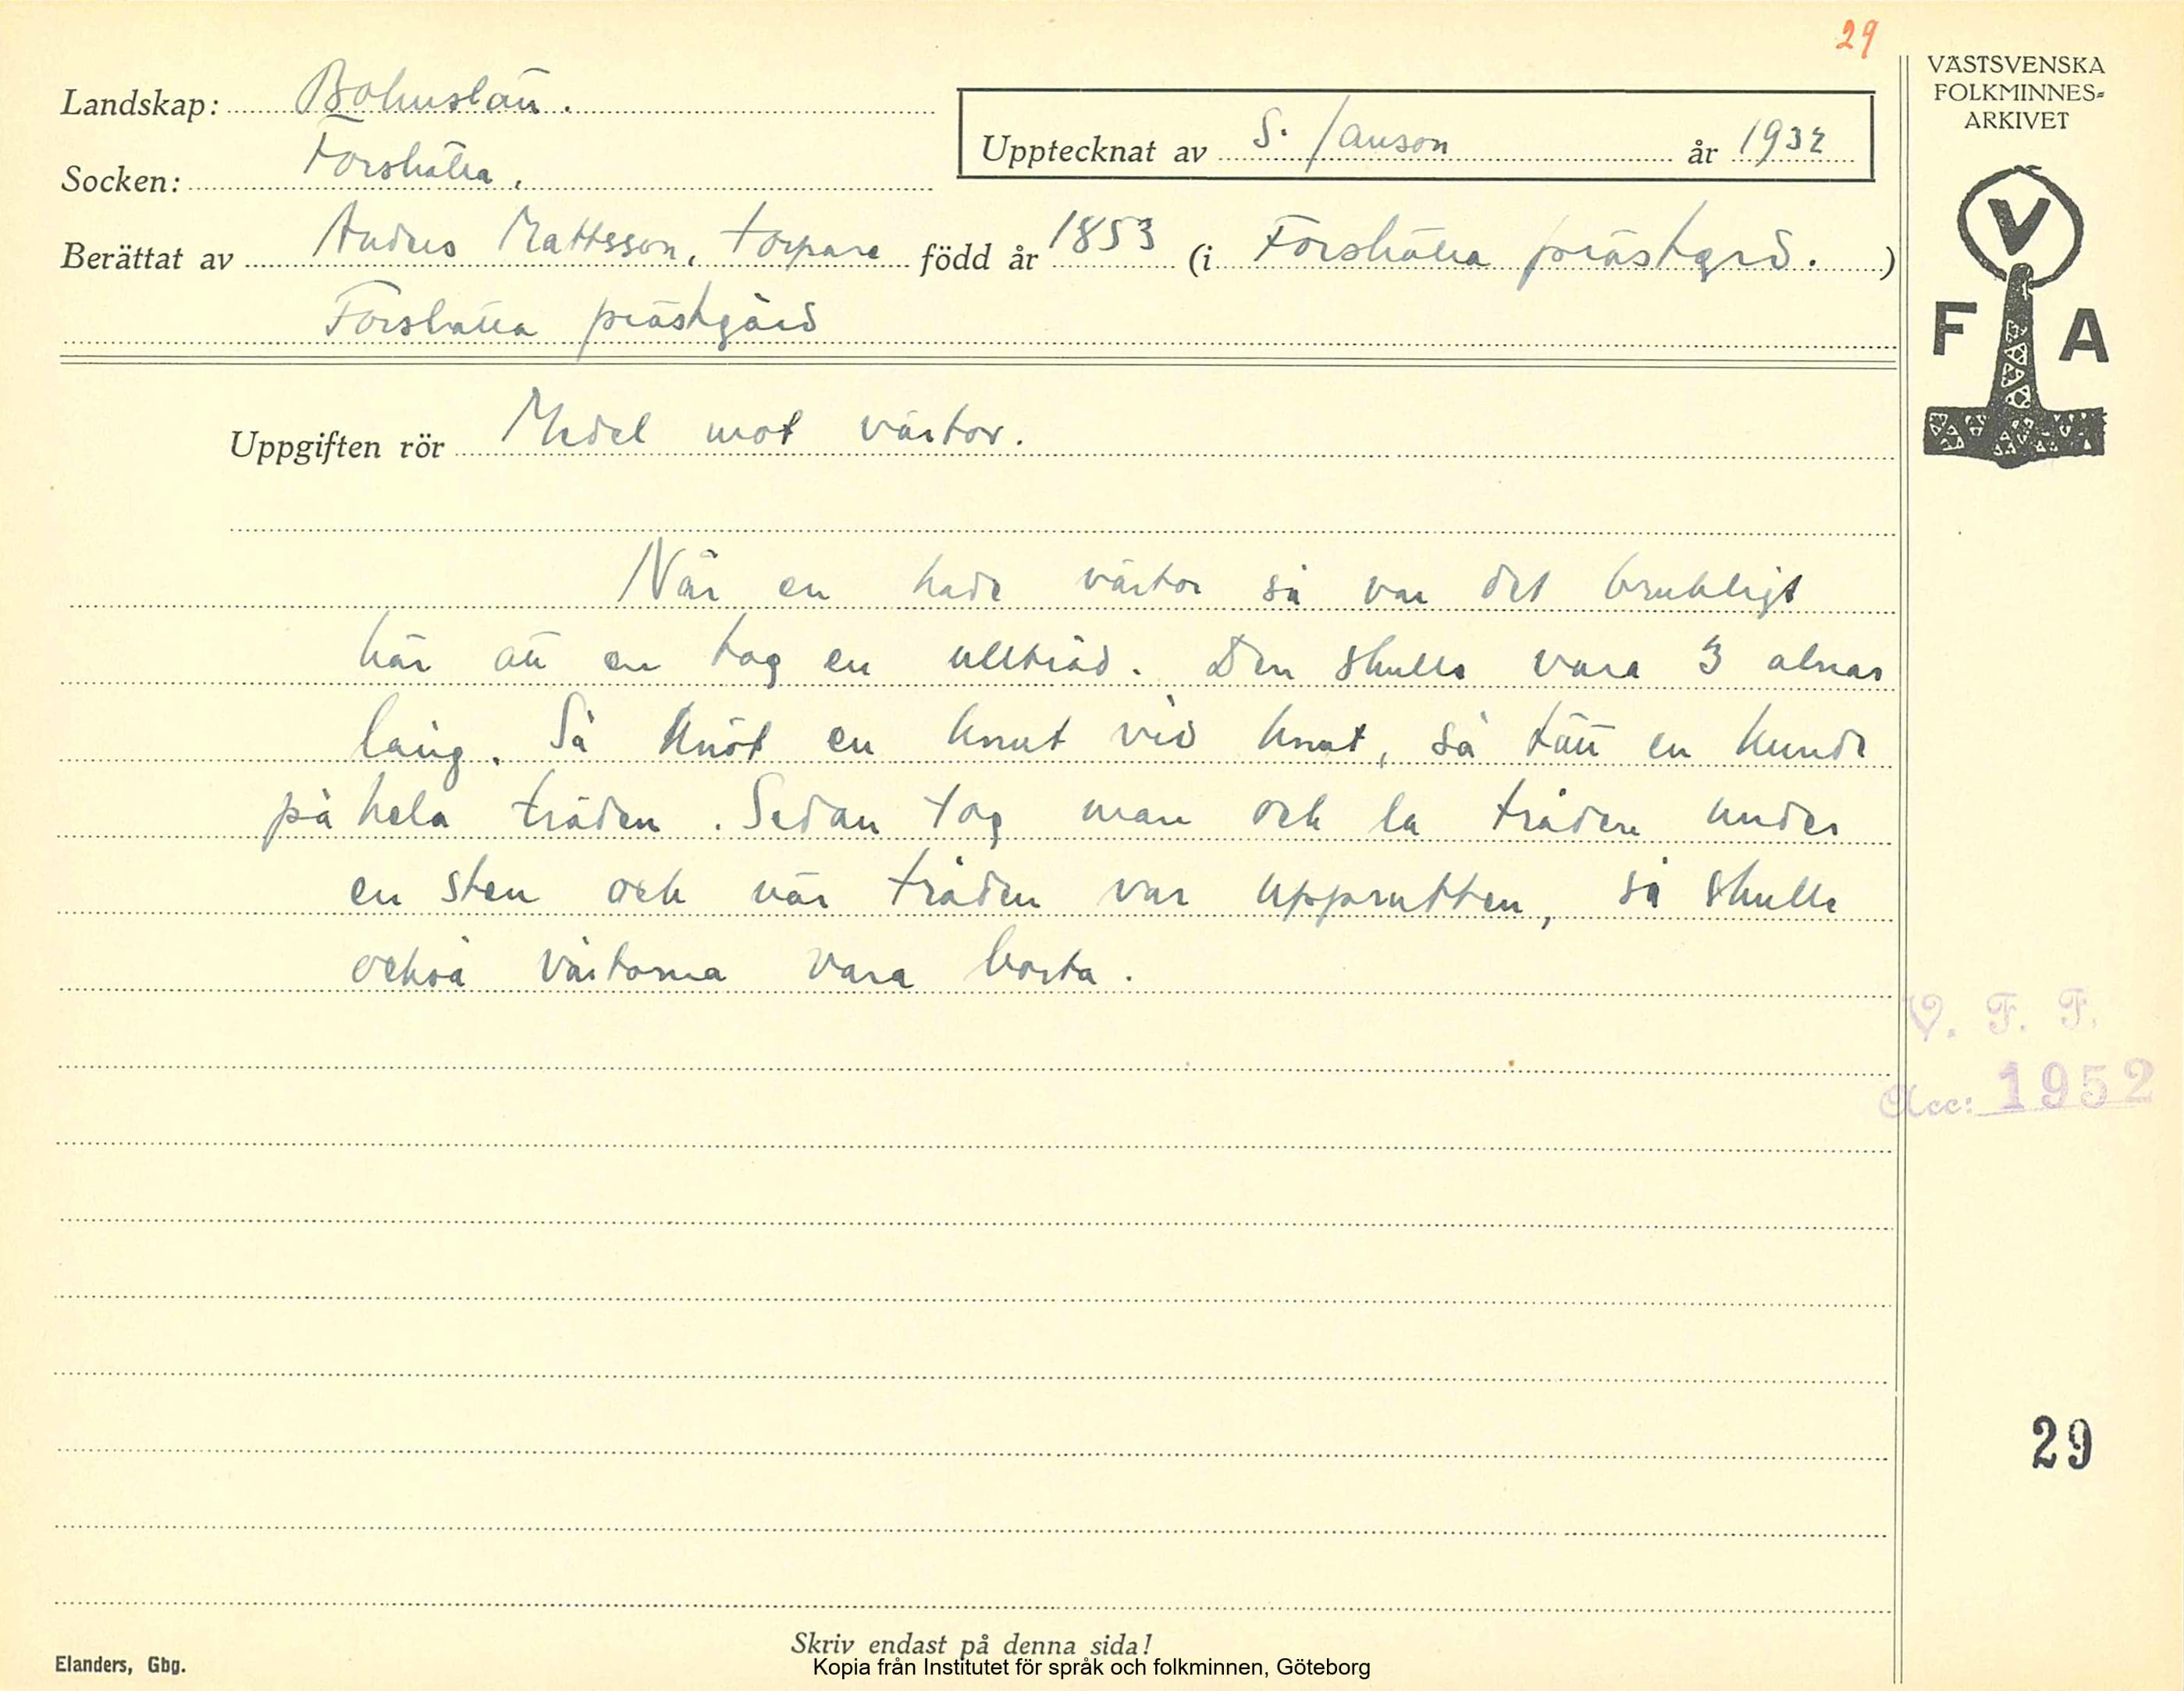 29
VÄSTSVENSKA
FOLKMINNES=
ARKIVET
Landskap: Bohuslän.
Upptecknat av S. Janson år 1932
Socken: Forshälla.
Berättat av Anders Mattsson, torpare född år 1853 (i Forshälla prästgrd.)
Forshälla prästgård
V
F A
Uppgiften rör Medel mot vårtor.
När en hade vårtor så var det brukligt
här att en tog en ulltråd. Den skulle vara 3 alnar
lång. Så knöt en knut vid knut, så tätt en kunde
på hela tråden. Sedan tog man och la tråden under
en sten och när tråden var upprutten, så skulle
också vårtorna vara borta.
V. F. F.
Acc: 1952
29
Skriv endast på denna sida!
Elanders, Gbg.
Kopia från Institutet för språk och folkminnen, Göteborg